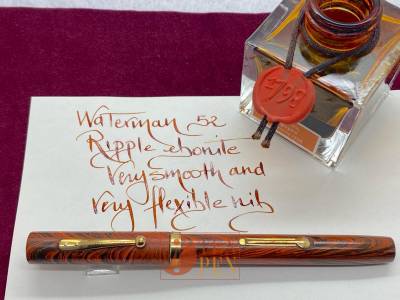 1798
Waterman 52
Ripple ebonite
Very smooth and
Very flexible nib
PEN